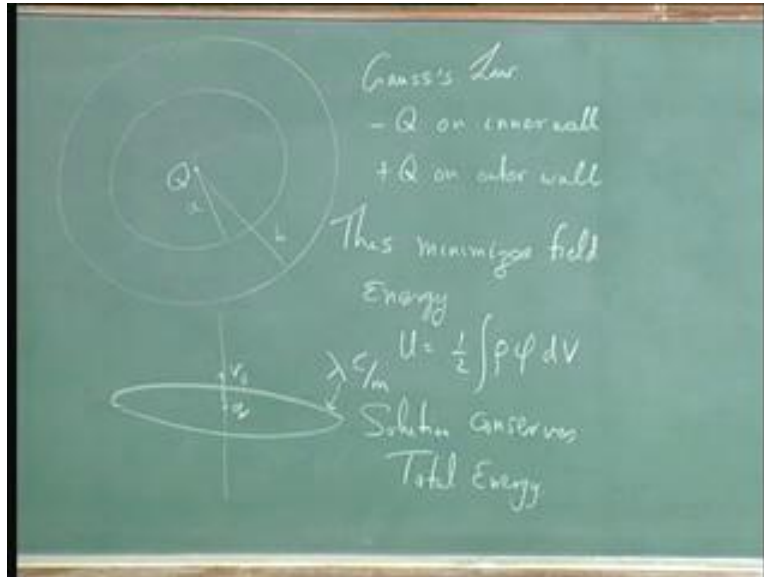 Gauss's Law
- Q on inner wall
+ Q on outer wall
Q
a
b
This minimizes field
Energy
U = 1/2 ∫ρφ dV
λ C/m
Solution conserves
Total Energy